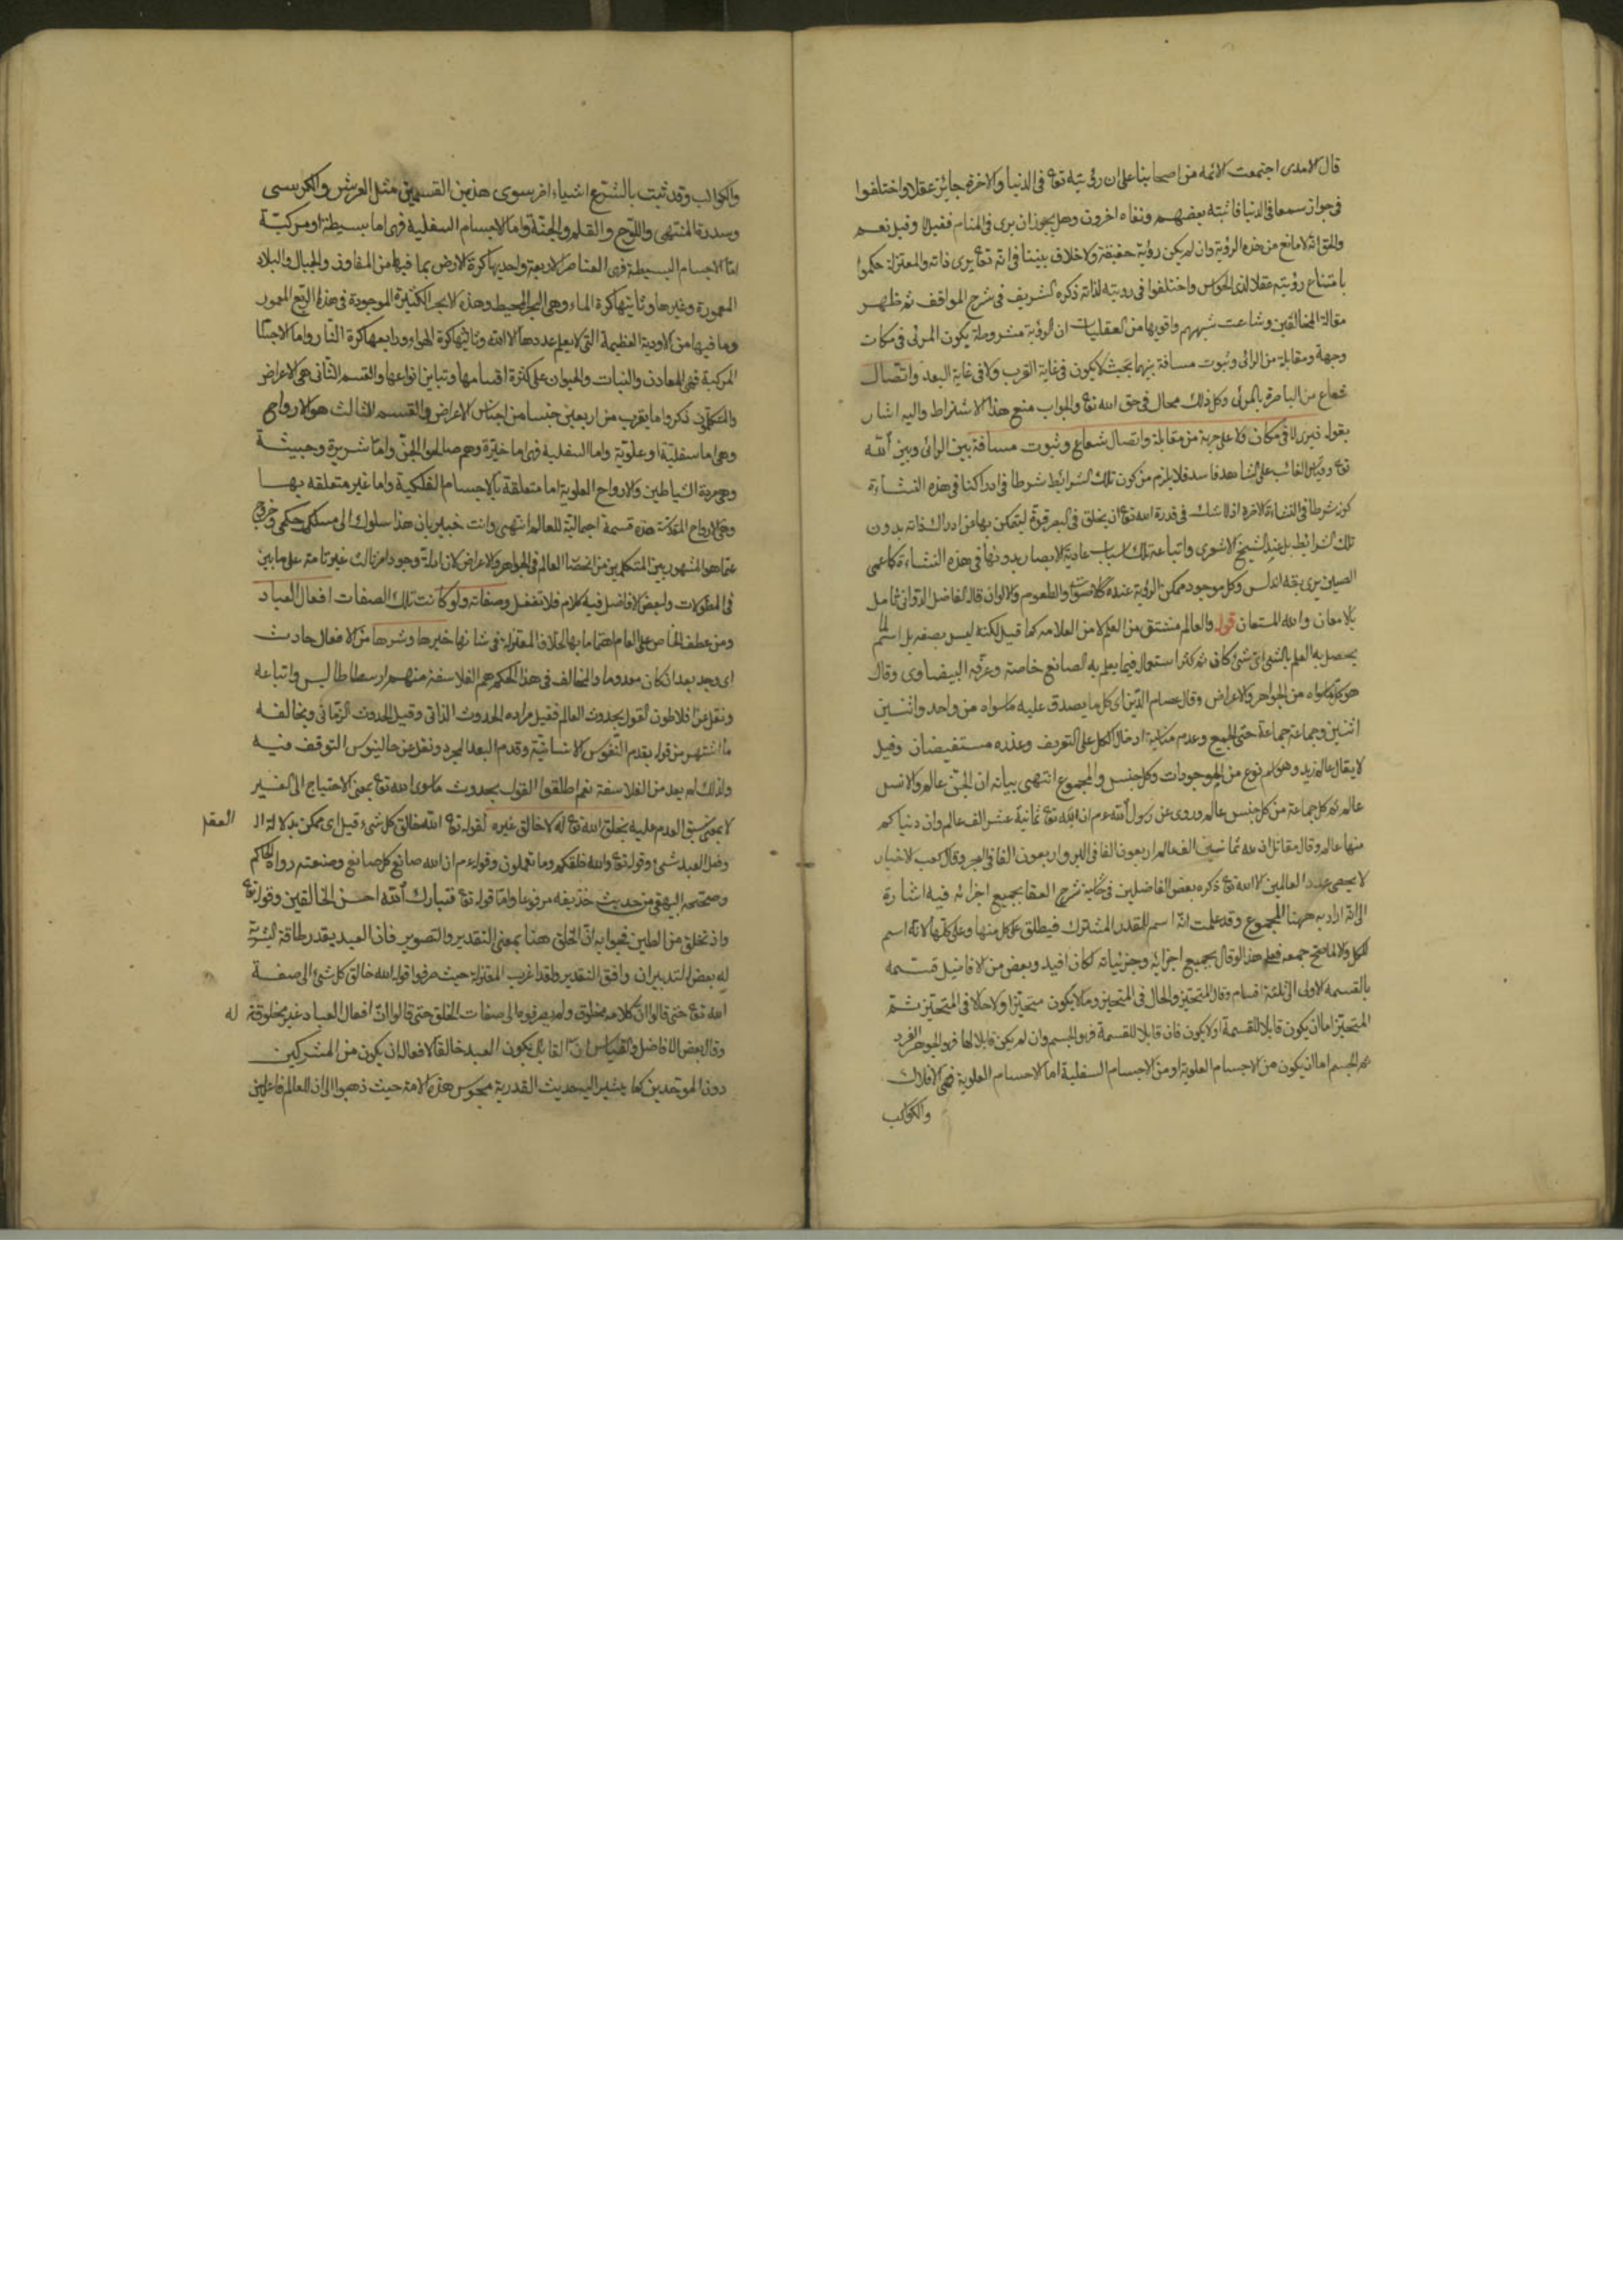 قال الامدى اجتمعت الائمه من اصحابنا على ان رؤيته تعا فى الدنيا والاخرة جايز عقلا واختلفوا
فى جواز سمعا فى الدنيا فاثبته بعضهم ونفاه اخرون وهل يجوز ان يرى فى المنام فقيل لا وقيل نعم
والحق انه لا مانع من هذه الرؤية وان لم يكن رؤية حقيقة ولا خلاف بيننا فى انه تعا يرى ذاته والمعتزلة حكموا
بامتناع رؤيته عقلا لذى الحواس واختلفوا فى رويته لذاته ذكره الشريف فى شرح المواقف ثم ظهر
مقالة المخالفين وشاعت شبههم واقويها من العقليات ان الرؤية مشروطة بكون المرئى فى مكان
وجهة ومقابلة من الرائى وثبوت مسافة بينهما بحيث لا يكون فى غاية القرب ولا فى غاية البعد واتصال
شعاع من الباصرة بالمرئى وكل ذلك محال فى حق الله تعا والجواب منع هذا الاشتراط واليه اشار
بقوله فيرى لا فى مكان ولا على جهة من مقابلة واتصال شعاع وثبوت مسافة بين الرائى وبين الله
تعا وقياس الغائب على الشاهد فاسد فلا يلزم من كون تلك الشرائط شرطا فى ادراكنا فى هذه النشاءة
كونه شرطا فى النشاءة الاخرة اذ لا شك فى قدرة الله تعا ان يخلق فى البصر قوة ليتمكن بها من ادراك ذاته بدون
تلك الشرائط بل عند الشيخ الاشعرى واتباعه تلك اسباب عادية لابصار بدونها فى هذه النشاءة كاعمى
الصين يرى بقه اندلس وكل موجود ممكن الرؤية عنده كالاصوات والطعوم والالوان قاله الفاضل الدوانى تامل
بالامعان والله المستعان قوله والعالم مشتق من العلم لا من العلامه كما قيل لكنه ليس بصفه بل اسم لما
يحصل به العلم بالشئ اى شئ كان ثم كثر استعماله فيما يعلم به الصانع خاصة وعرفه البيضاوى وقال
هو كل ما سواه من الجواهر والاعراض وقال عصام الدين اى كل ما يصدق عليه ما سواه من واحد واثنين
اثنين وجماعة جماعة حتى الجميع وعدم مناسبة ادخال الكل على التعريف وعذره مستفيضان وقيل
لا يقال عالم زيد وهو اسم نوع من الموجودات وكل جنس والمجموع انتهى بيانه ان الجن عالم والانس
عالم ثم كل جماعة من كل جنس عالم وروى عن رسول الله عم ان لله تعا ثمانية عشر الف عالم وان دنياكم
منها عالم وقال مقاتل لله ثمانين الف عالم اربعون الفا فى البر واربعون الفا فى البحر وقال كعب الاخبار
لا يحصى عدد العالمين الا الله تعا ذكره بعض الفاضلين فى حاشية شرح العقا بجميع اجزائه فيه اشارة
الى انه اراد به ههنا المجموع وقد علمت انه اسم للقدر المشترك فيطلق على كل منها وعلى كلها لا انه اسم
للكل والا لما صح جمعه فعلى هذا لو قال بجميع اجزائه وجزئياته لكان افيد وبعض من الافاضيل قسمه
بالقسمه الاولى الى ثلثة اقسام وقال المتحيز والحال فى المتحيز وما لا يكون متحيزا ولا حالا فى المتحيز ثم
المتحيز اما ان يكون قابلا للقسمة او لا يكون فان قابلا للقسمة فهو الجسم وان لم يكن قابلا لها فهو الجوهر الفرد
ثم الجسم اما ان يكون من الاجسام العلوية او من الاجسام السفلية اما الاجسام العلوية فهى الافلاك
والكواكب
والكواكب وقد ثبت بالشرع اشياء اخر سوى هذين القسمين مثل العرش والكرسى
وسدرة المنتهى واللوح والقلم والجنة واما الاجسام السفلية فهى اما بسيطة او مركبة
اما الاجسام البسيطة فهى العناصر الاربعة واحديها كرة الارض بما فيها من المفاوز والجبال والبلاد
المعمورة وغيرها وثانيتها كرة الماء وهى البحر المحيط وهذه الابحر الكثيرة الموجودة فى هذه الربع المعمور
وما فيها من الاودية العظيمة التى لا يعلم عددها الا الله وثالثها كرة الهواء ورابعها كرة النار واما الاجسا
المركبة فهى المعادن والنبات والحيوان على كثرة اقسامها وتباين انواعها والقسم الثانى هى الاعراض
والمتكلمون ذكروا ما يقرب من اربعين جنسا من اجناس الاعراض والقسم الثالث هو الارواح
وهى اما سفلية او علوية واما السفلية فهى اما خيرة وهم صالحوا الجن واما شريرة وخبيثة
وهى مردة الشياطين والارواح العلوية اما متعلقة بالاجسام الفلكية واما غير متعلقه بها
وهى الارواح المقدسة هذه قسمة اجمالية للعالم انتهى وانت خبير بان هذا سلوك الى مسلك حكمى وخروج
عما هو المشهور بين المتكلمين من انحصار العالم فى الجواهر والاعراض كان ادلة وجود امر ثالث غير تامة على ما بين
فى المطولات ولبعض الافاضل فيه كلام فلا تغفل وصفاته ولو كانت تلك الصفات افعال العباد
ومن عطف الخاص على العام اهتماما بها لخلاف المعتزلة فى شانها خيرها وشرها من الافعال حادث
اى وجد بعد ان كان معدوما والمخالف فى هذا الحكم هم الفلاسفة منهم ارسطاطاليس واتباعه
ونقل عن افلاطون القول بحدوث العالم فقيل مراده الحدوث الذاتى وقيل الحدوث الزمانى ويخالفه
ما اشتهر من قوله بقدم النفوس الانسانية وقدم البعد المجرد ونقل عن جالينوس التوقف فيه
ولذلك لم يعد من الفلاسفة نعم اطلقوا القول بحدوث ما سوى الله تعا بمعنى الاحتياج الى الغير
لا بمعنى سبق العدم عليه بخلق الله تعا له لا خالق غيره لقوله تعا الله خالق كل شىء قيل اى ممكن بدلالة
العقل
وفعل العبد شئ وقوله تعا والله خلقكم وما تعملون وقوله عم ان الله صانع كل صانع وصنعته رواه الحاكم
وصححه البيهقى من حديث حذيفه مرفوعا واما قوله تعا فتبارك الله احسن الخالقين وقوله تعا
واذ تخلق من الطين فجوابه ان الخلق هنا بمعنى التقدير والتصوير فان العبد يقدر طاقة البشرية
له بعض التدبير ان وافق التقدير ولقد اغرب المعتزلة حيث صرفوا قوله الله خالق كل شئ الى صفة
الله تعا حتى قالوا ان كلامه مخلوق ولم يصرفوها الى صفات الخلق حتى قالوا ان افعال العباد غير مخلوقة
له
وقال بعض الافاضل والقياس ان القايل بكون العبد خالقا لافعاله ان يكون من المشركين
دون الموحدين كما يشير اليه حديث القدرية مجوس هذه الامة حيث ذهبوا الى ان للعالم فاعلين